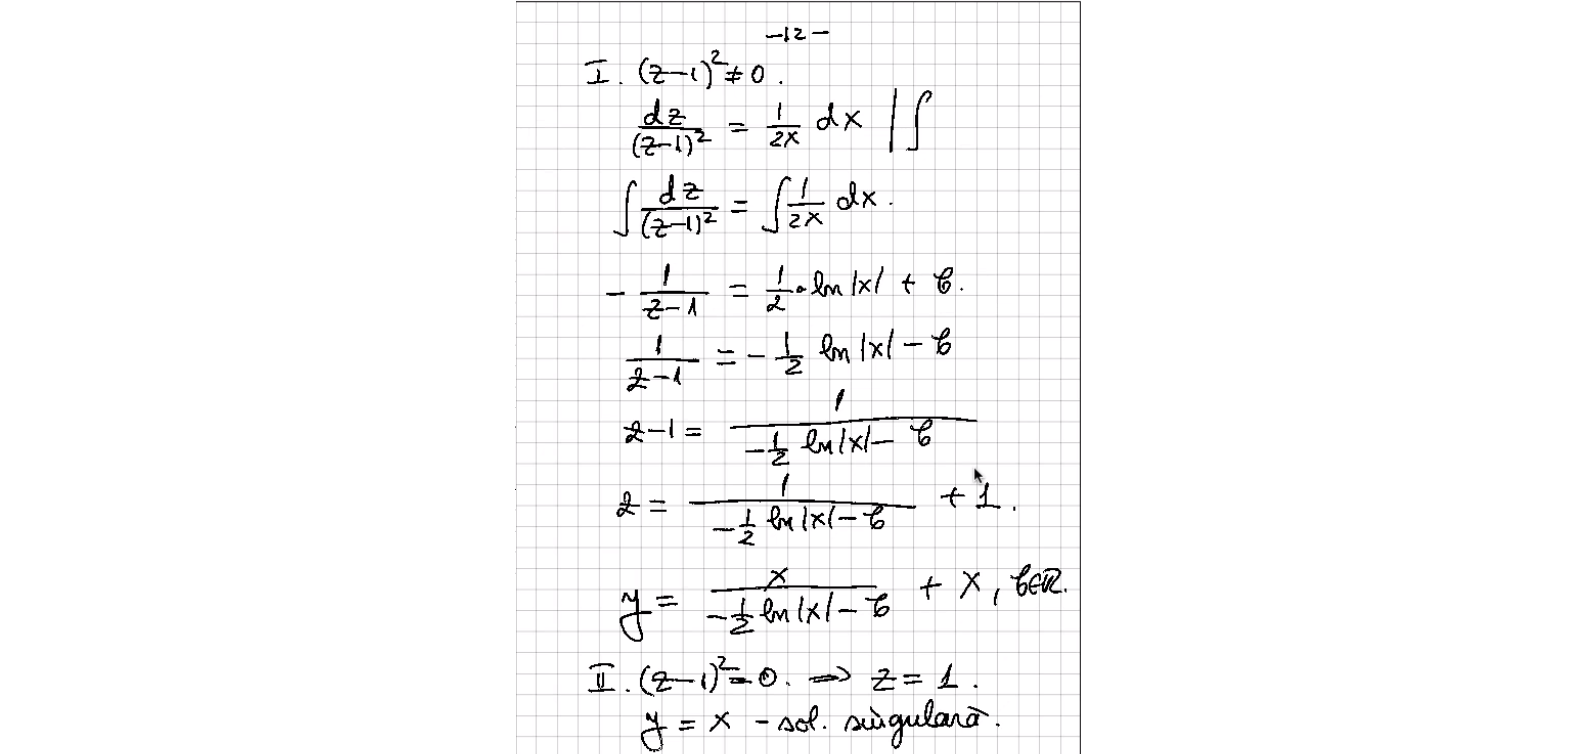 -12-
I. (z-1)² ≠ 0.
dz/(z-1)² = 1/2x dx | ∫
∫ dz/(z-1)² = ∫ 1/2x dx.
- 1/(z-1) = 1/2 · ln|x| + C.
1/(z-1) = - 1/2 ln|x| - C
z-1 = 1/(-1/2 ln|x| - C)
z = 1/(-1/2 ln|x| - C) + 1.
y = x/(-1/2 ln|x| - C) + x, C∈ℝ.
II. (z-1)² = 0. ⇒ z = 1.
y = x - sol. singulară.